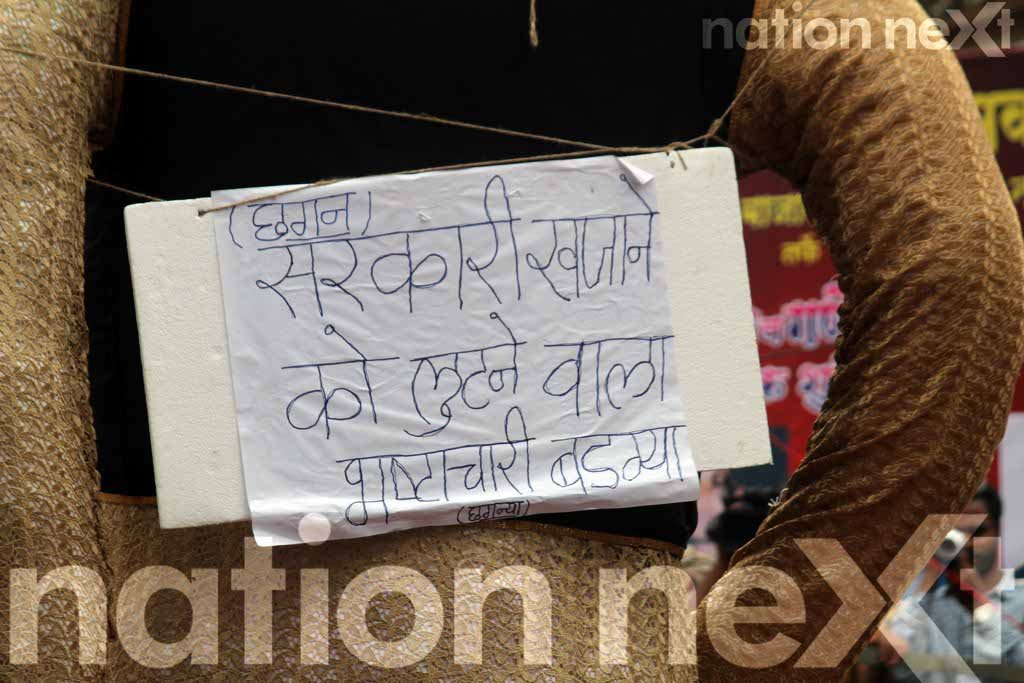 nation next
(छगन)
सरकारी खजाने
को लुटने वाला
भ्रष्टाचारी बडग्या
(छगन्या)
nation next